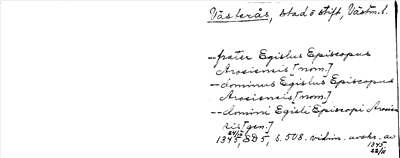 Västerås, stad o stift, Västm. l.
--frater Egislus Episcopus
Arosiensis [nom.]
--dominus Egislus Episcopus
Arosiensis [nom.]
--domini Egisli Episcopi Arosien
sis [gen.]
1345 SD 5, s. 508. vidim. avskr. av
1345
22/11